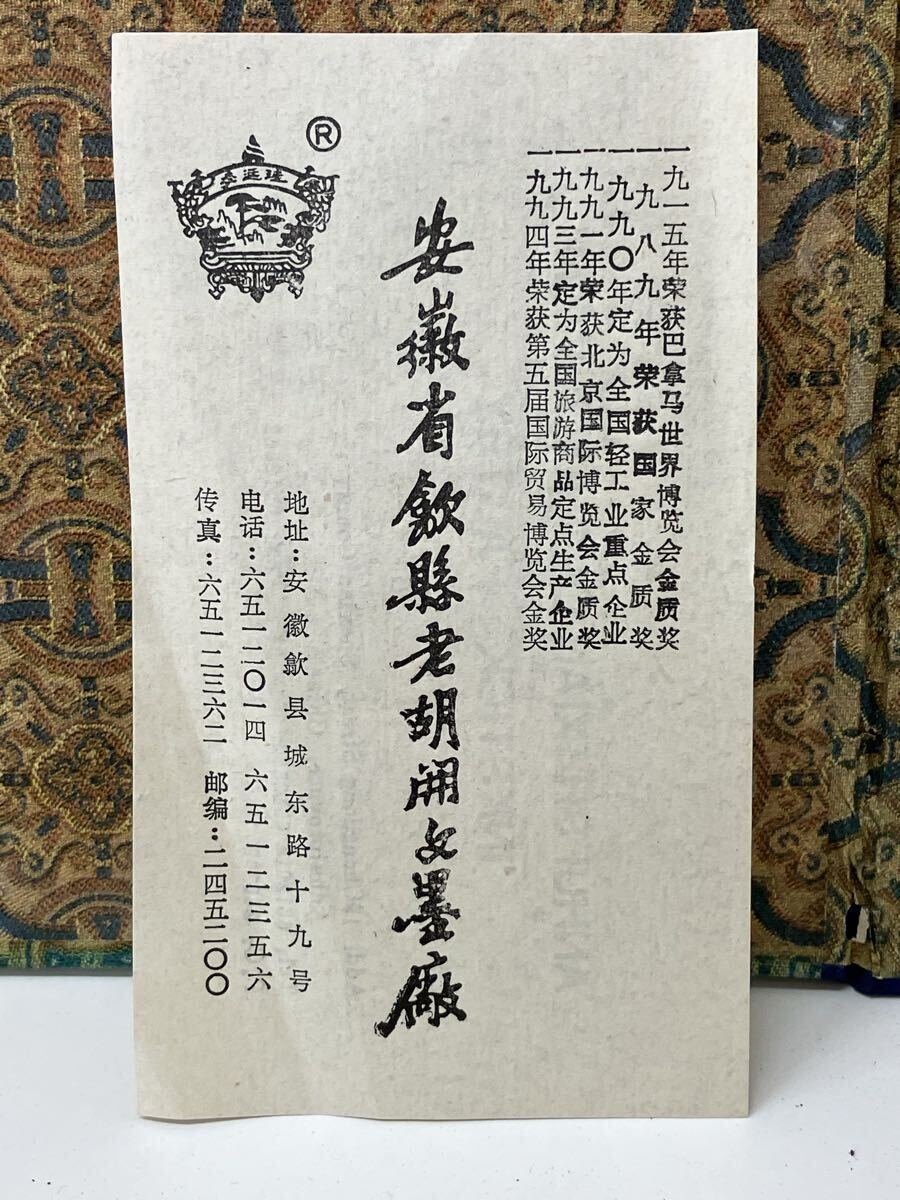 一九一五年荣获巴拿马世界博览会金质奖
一九八九年荣获国家金质奖
一九九〇年定为全国轻工业重点企业
一九九一年荣获北京国际博览会金质奖
一九九三年定为全国旅游商品定点生产企业
一九九四年荣获第五届国际贸易博览会金奖
安徽省歙縣老胡開文墨廠
地址：安徽歙县城东路十九号
电话：六五一二〇一四 六五一二三五六
传真：六五一二三六二 邮编：二四五二〇〇
®